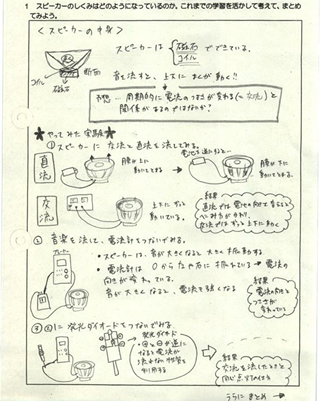 1 スピーカーのしくみはどのようになっているのか。これまでの学習を活かして考えて、まとめてみよう。
＜スピーカーの中身＞
スピーカーは 磁石 でできている。
コイル
断面
コイル
磁石
音を流すと、上下にまくが動く!!
予想…周期的に電流の
関係があるのではないか?
★やってみた実験★
①スピーカーに交流と直流を流してみる。
電池を逆にすると…
直流
膜が上に
動いてでてくる
膜が下に
交流
上下にずっと
動いている。
結果
直流では電池の向きで
交流ではずっと上下に動く
② 音楽を流して、電流計をつないでみる。
・スピーカーは、音が大きくなると大きく振動する
・電流計は0から左や右に振れている→電流の
向きが変わっている。
音が大きくなると電流も強くなる
結果
電流の向きと
変わっている
③ ②に発光ダイオードをつないでみる
発光ダイオード
・⊕と⊖が逆に
なると電流が
流れない性質を
利用する
結果
交流を流したときと
同じ
うらにまとめ→